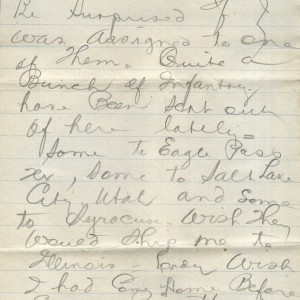 Be Surprised If I
was assigned to one
of Them. Quite a
Bunch of Infantry
have Been Sent out
of here lately-
Some to Eagle Pass
Tex, Some to Salt Lake
City Utah and Some
to Syracuse. Wish They
would Ship me to
Illinois - Wish
I had Come Home Before